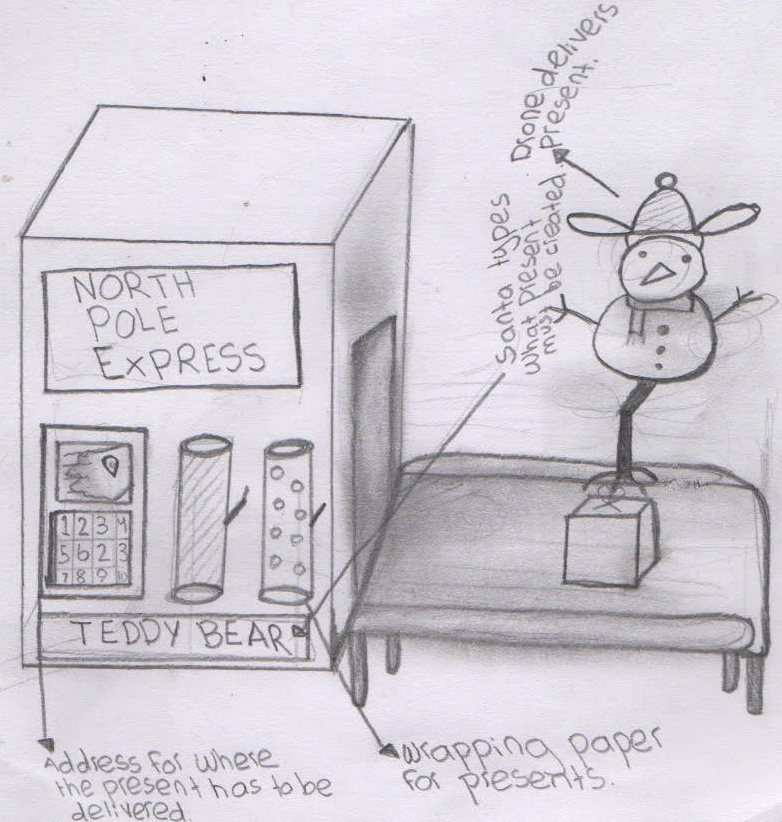 Drone delivers
present.
Santa types
what present
must be created.
NORTH
POLE
ExPRESS
1 2 3 4
5 6 2 3
7 8 9
TEDDY BEAR
Address for where
the present has to be
delivered.
wrapping paper
for presents.